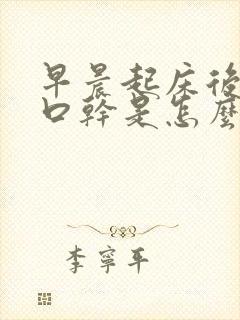 早晨起床後
口幹是怎麼
李寧平